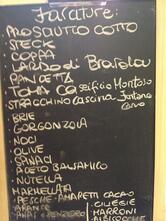 Farciture:
PROSCIUTTO COTTO
STECK
COPPA
di Brasiola
PANCETTA
TOMA Caseificio Montoso
STRACCHINO cascina Fontana
BRIE
GORGONZOLA
NOCI
OLIVE
SPINACI
ACETO BALSAMICO
NUTELLA
MARMELLATA
- PESCHE - AMARETTI CACAO
- ARANCE - CILIEGIE
ZENZERO - MARRONI
- ALBICOCCHE